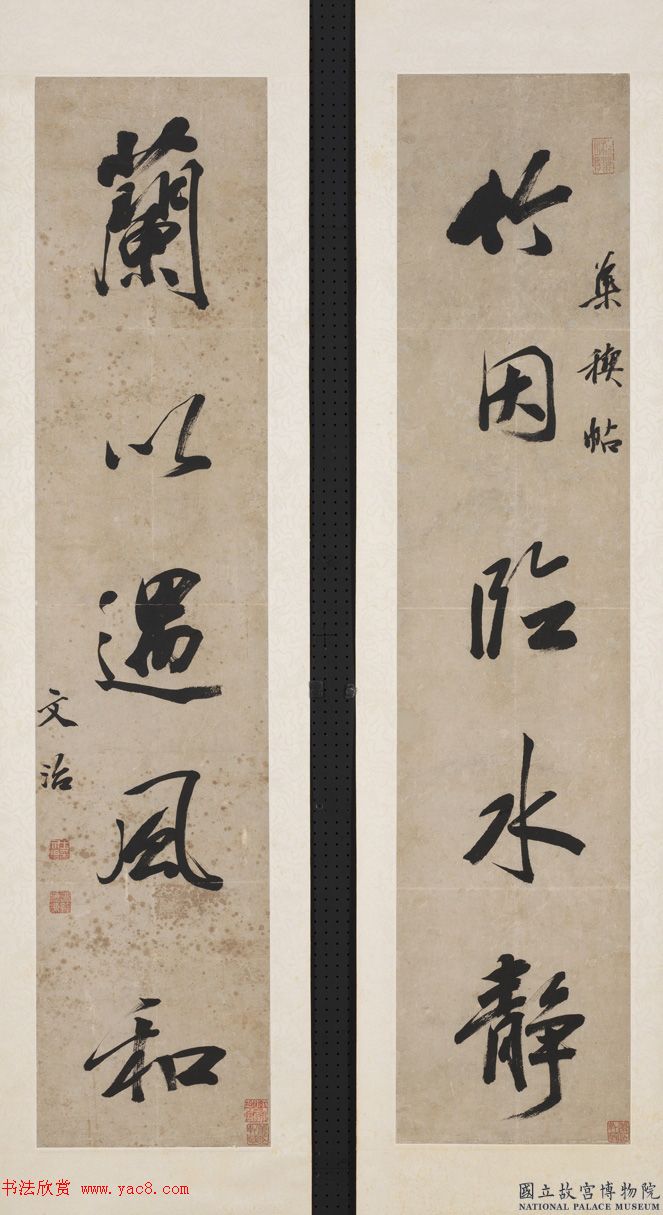 竹因臨水靜
集稧帖
蘭以遇風和
文治
书法欣赏 www.yac8.com
國立故宮博物院
NATIONAL PALACE MUSEUM